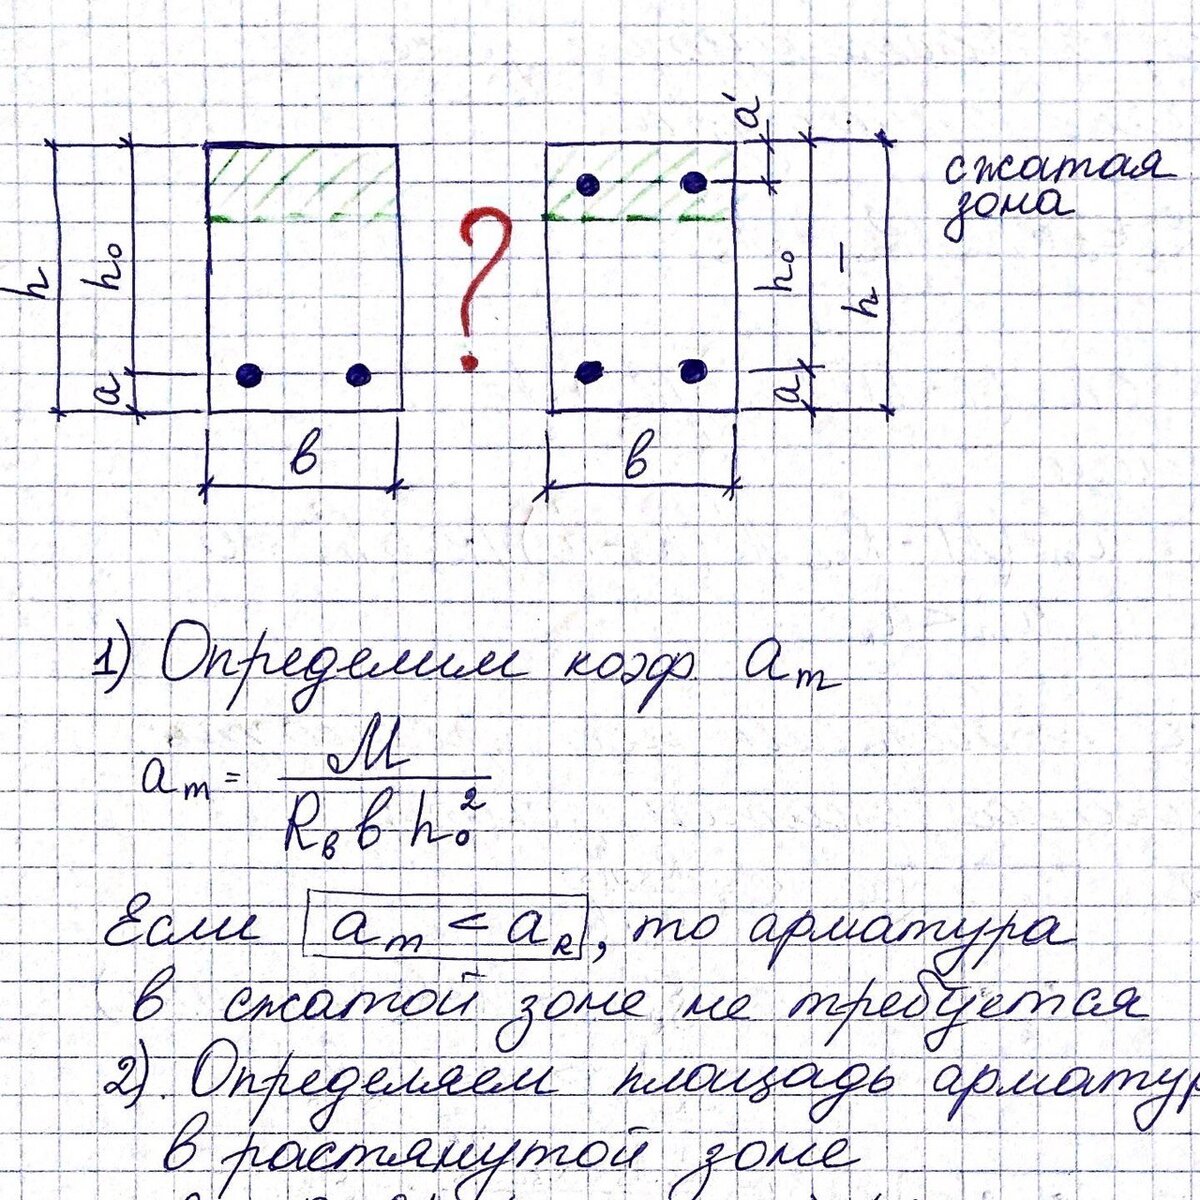 h
h₀
a
в
?
a'
h₀
a
h
в
сжатая
зона
1) Определим коэф am
am = M
Rв в h₀²
Если am < aR, то арматура
в сжатой зоне не требуется
2). Определяем площадь арматур
в растянутой зоне